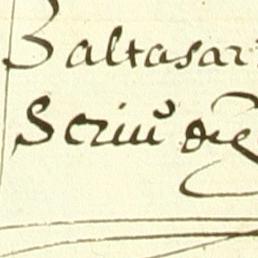 Baltasar
Scriu^o